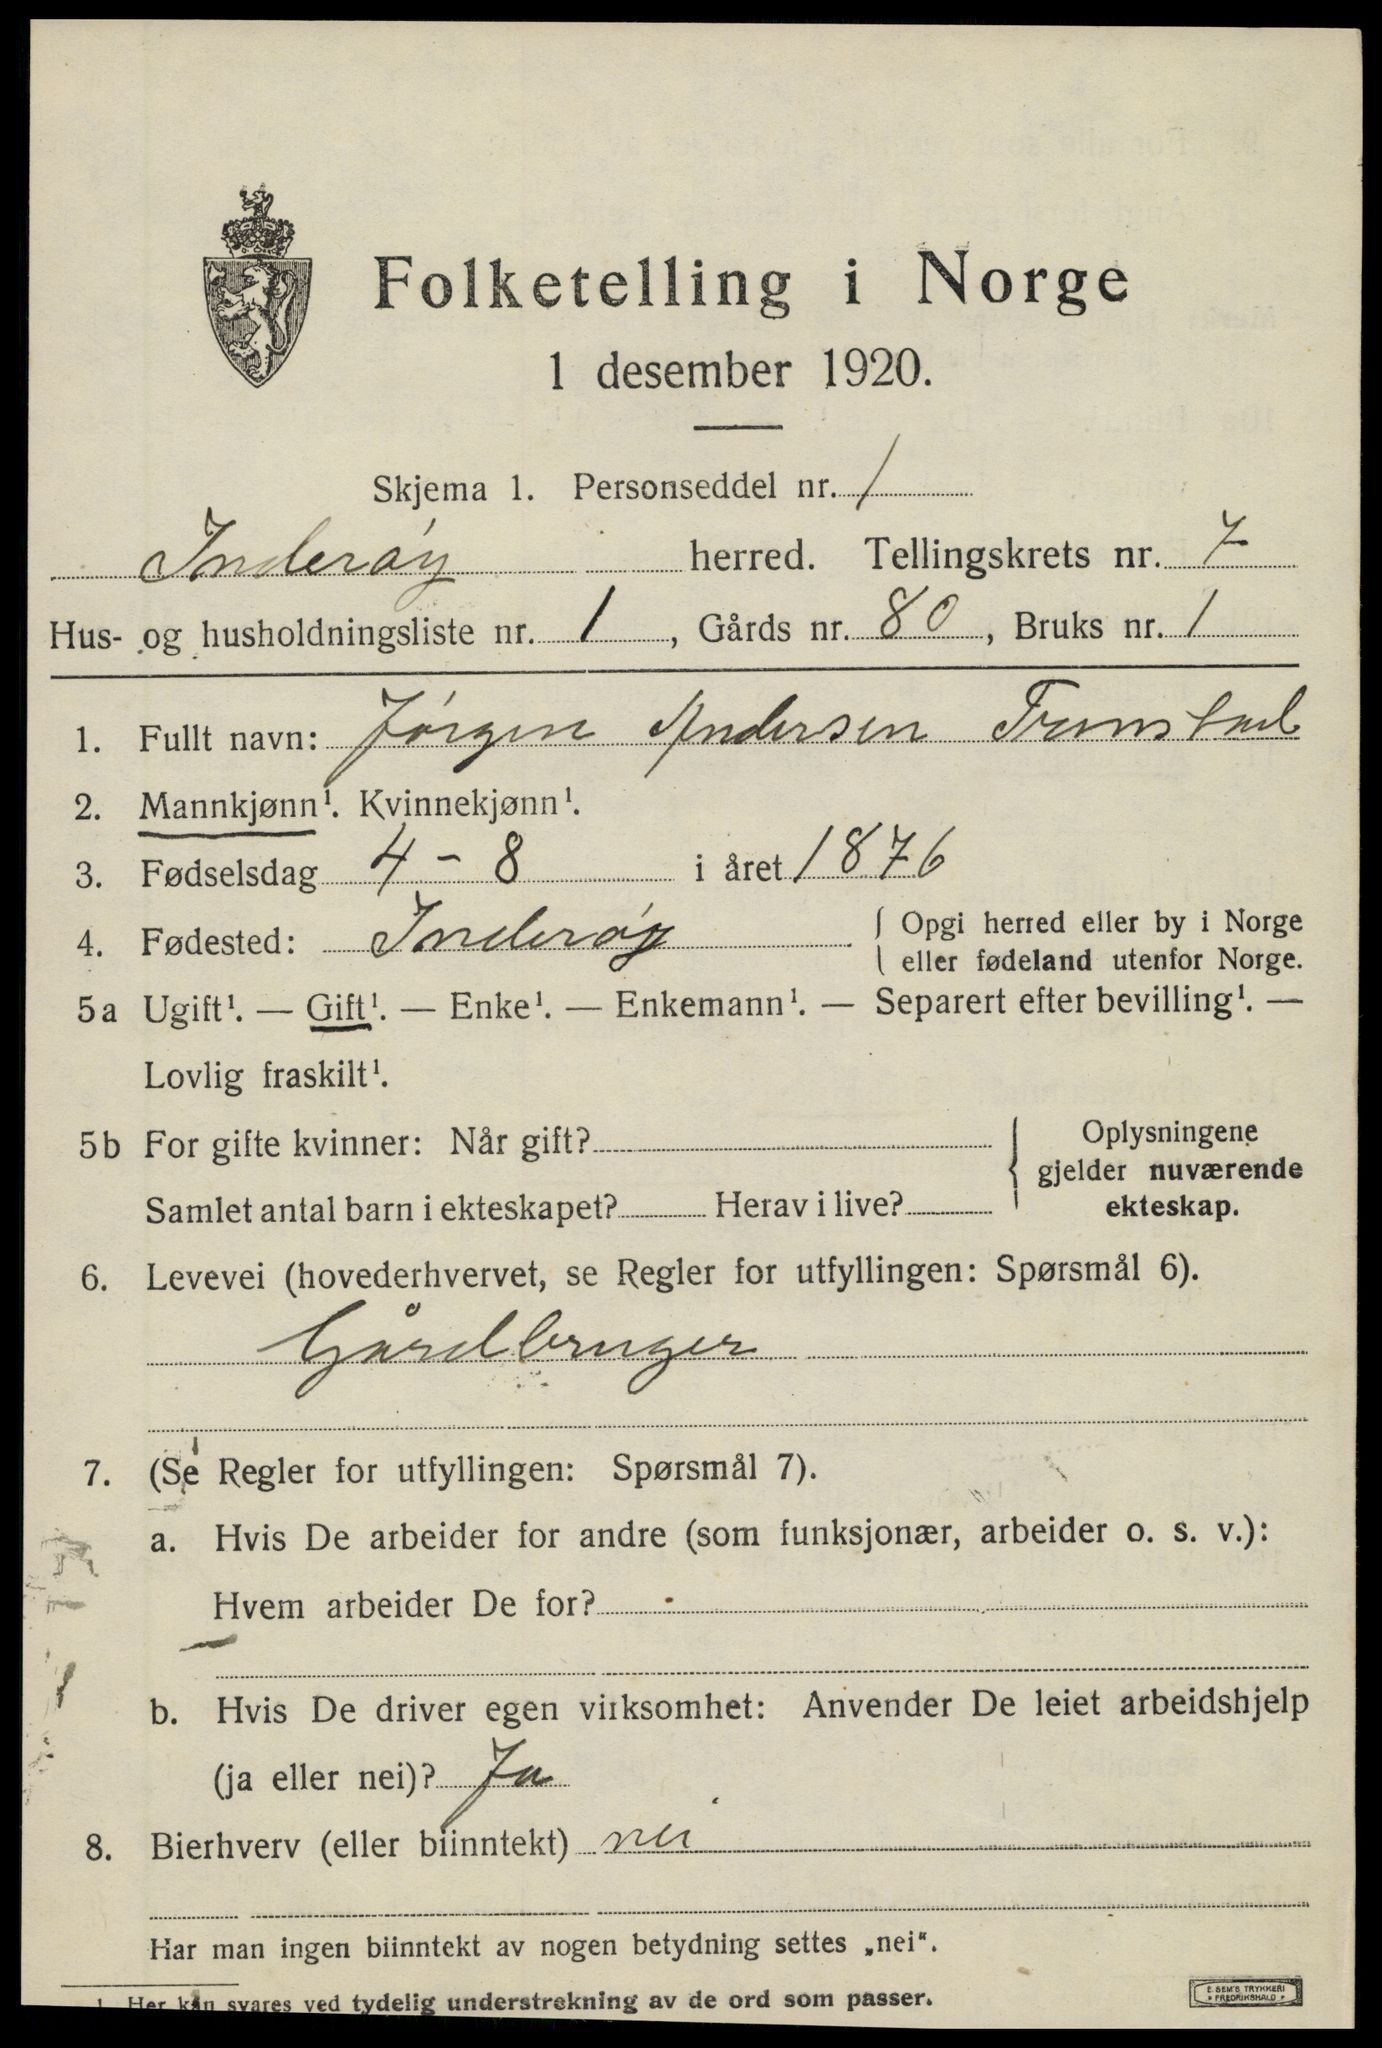 Folketelling i Norge
1 desember 1920.
Skjema 1. Personseddel nr. 1
Inderøy herred. Tellingskrets nr. 7
Hus- og husholdningsliste nr. 1, Gårds nr. 80, Bruks nr. 1
1. Fullt navn: Jørgen Andersen
2. Mannkjønn¹. Kvinnekjønn¹.
3. Fødselsdag 4 - 8 i året 1876
4. Fødested: Inderøy { Opgi herred eller by i Norge
eller fødeland utenfor Norge.
5a Ugift¹. — Gift¹. — Enke¹. — Enkemann¹. — Separert efter bevilling¹. —
Lovlig fraskilt¹.
5b For gifte kvinner: Når gift? { Oplysningene
gjelder nuværende
Samlet antal barn i ekteskapet? Herav i live? ekteskap.
6. Levevei (hovederhvervet, se Regler for utfyllingen: Spørsmål 6).
Gårdbruger
7. (Se Regler for utfyllingen: Spørsmål 7).
a. Hvis De arbeider for andre (som funksjonær, arbeider o. s. v.):
Hvem arbeider De for?
b. Hvis De driver egen virksomhet: Anvender De leiet arbeidshjelp
(ja eller nei)? Ja
8. Bierhverv (eller biinntekt) nei
Har man ingen biinntekt av nogen betydning settes „nei“.
1 Her kan svares ved tydelig understrekning av de ord som passer.
E. SEM'S TRYKKERI
FREDRIKSHALD